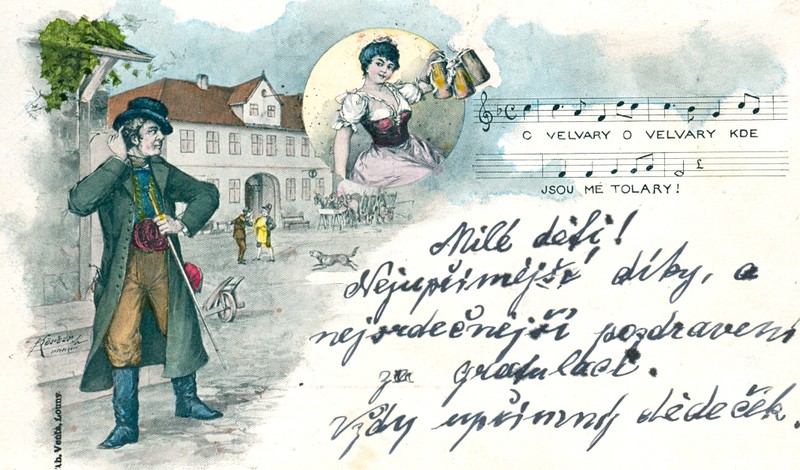 O VELVARY O VELVARY KDE
JSOU MÉ TOLARY!
Milé děti!
Nejupřimější díky, a
nejsrdečnější pozdravení
za gratulaci.
Vždy upřimný dědeček.
Venta, Louny